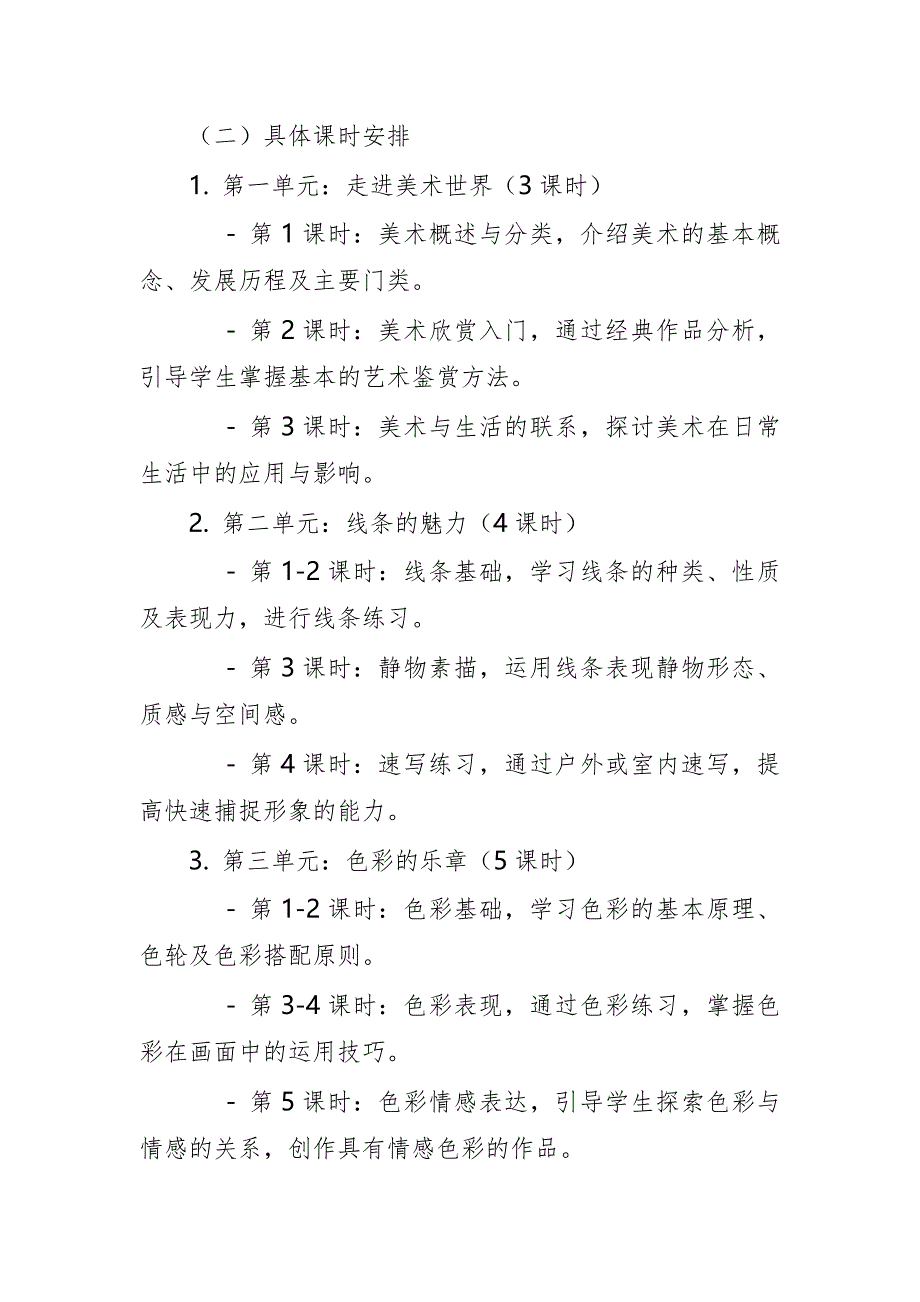 （二）具体课时安排
1. 第一单元：走进美术世界（3 课时）
- 第 1 课时：美术概述与分类，介绍美术的基本概
念、发展历程及主要门类。
- 第 2 课时：美术欣赏入门，通过经典作品分析，
引导学生掌握基本的艺术鉴赏方法。
- 第 3 课时：美术与生活的联系，探讨美术在日常
生活中的应用与影响。
2. 第二单元：线条的魅力（4 课时）
- 第 1-2 课时：线条基础，学习线条的种类、性质
及表现力，进行线条练习。
- 第 3 课时：静物素描，运用线条表现静物形态、
质感与空间感。
- 第 4 课时：速写练习，通过户外或室内速写，提
高快速捕捉形象的能力。
3. 第三单元：色彩的乐章（5 课时）
- 第 1-2 课时：色彩基础，学习色彩的基本原理、
色轮及色彩搭配原则。
- 第 3-4 课时：色彩表现，通过色彩练习，掌握色
彩在画面中的运用技巧。
- 第 5 课时：色彩情感表达，引导学生探索色彩与
情感的关系，创作具有情感色彩的作品。